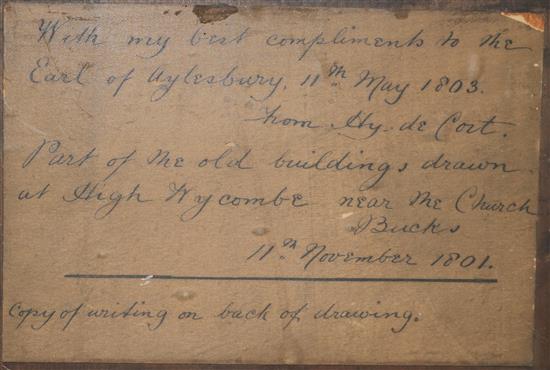 With my best compliments to the
Earl of Aylesbury, 11th May 1803.
from Hy. de Cort.
Part of the old buildings drawn
at High Wycombe near the Church
Bucks
11th November 1801.
copy of writing on back of drawing.